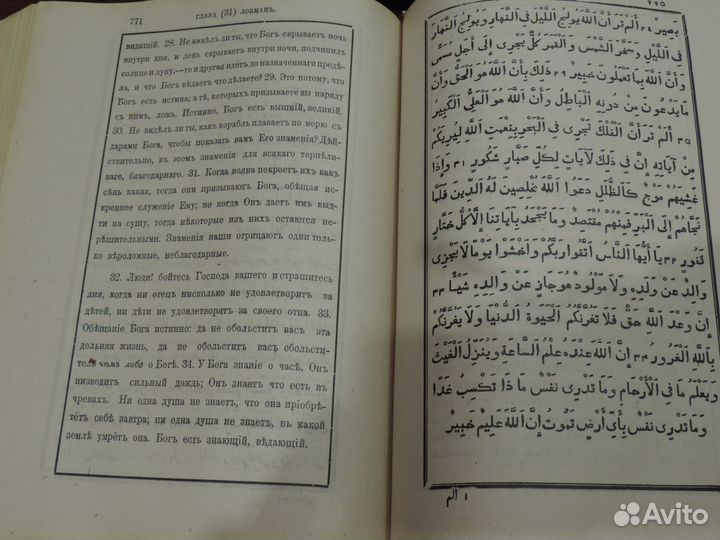 771
ГЛАВА (31) ЛОКМАНЪ.
видящій. 28. Не видѣлъ ли ты, что Богъ скрываетъ ночь
внутри дня, и день скрываетъ внутри ночи, подчинилъ
солнце и луну,—то и другая идетъ до назначеннаго предѣ-
ла, и что Богъ вѣдаетъ что дѣлаете? 29. Это потому, что
Богъ есть истина; а тѣ, которыхъ призываете вы наряду
съ нимъ, ложь. Истинно, Богъ есть вышній, великій.
30. Не видѣлъ ли ты, какъ корабль плаваетъ по морю съ
дарами Бога, чтобы показать вамъ Его знаменія? Дѣй-
ствительно, въ этомъ знаменія для всякаго терпѣли-
ваго, благодарнаго. 31. Когда волна покроетъ ихъ какъ
сѣнь какая, тогда они призываютъ Бога, обѣщая ис-
креннее служеніе Ему; но когда Онъ дастъ имъ вый-
ти на сушу, тогда нѣкоторые изъ нихъ остаются не-
рѣшительными. Знаменія наши отрицаютъ одни толь-
ко вѣроломные, неблагодарные.
32. Люди! бойтесь Господа вашего и страшитесь
дня, когда ни отецъ нисколько не удовлетворитъ за
дѣтей, ни дѣти не удовлетворятъ за своего отца. 33.
Обѣщаніе Бога истинно: да не обольститъ васъ эта
дольняя жизнь, да не обольститъ васъ обольсти-
тель чѣмъ либо о Богѣ. 34. У Бога знаніе о часѣ. Онъ
низводитъ сильный дождь; Онъ знаетъ что есть въ
чревахъ. Ни одна душа не знаетъ, что она пріобрѣ-
тетъ себѣ завтра; ни одна душа не знаетъ, въ какой
землѣ умретъ она. Богъ есть знающій, вѣдающій.
٧٧٥
بَصِيرٌ ٢٨ أَلَمْ تَرَ أَنَّ اللَّهَ يُولِجُ اللَّيْلَ فِي النَّهَارِ وَيُولِجُ النَّهَارَ
فِي اللَّيْلِ وَسَخَّرَ الشَّمْسَ وَالْقَمَرَ كُلٌّ يَجْرِي إِلَى أَجَلٍ مُسَمًّى
وَأَنَّ اللَّهَ بِمَا تَعْمَلُونَ خَبِيرٌ ٢٩ ذَلِكَ بِأَنَّ اللَّهَ هُوَ الْحَقُّ وَأَنَّ
مَا يَدْعُونَ مِنْ دُونِهِ الْبَاطِلُ وَأَنَّ اللَّهَ هُوَ الْعَلِيُّ الْكَبِيرُ
٣٠ أَلَمْ تَرَ أَنَّ الْفُلْكَ تَجْرِي فِي الْبَحْرِ بِنِعْمَتِ اللَّهِ لِيُرِيَكُمْ
مِنْ آيَاتِهِ إِنَّ فِي ذَلِكَ لَآيَاتٍ لِكُلِّ صَبَّارٍ شَكُورٍ ٣١ وَإِذَا
غَشِيَهُمْ مَوْجٌ كَالظُّلَلِ دَعَوُا اللَّهَ مُخْلِصِينَ لَهُ الدِّينَ فَلَمَّا
نَجَّاهُمْ إِلَى الْبَرِّ فَمِنْهُمْ مُقْتَصِدٌ وَمَا يَجْحَدُ بِآيَاتِنَا إِلَّا كُلُّ خَتَّارٍ
كَفُورٍ ٣٢ يَا أَيُّهَا النَّاسُ اتَّقُوا رَبَّكُمْ وَاخْشَوْا يَوْمًا لَا يَجْزِي
وَالِدٌ عَنْ وَلَدِهِ وَلَا مَوْلُودٌ هُوَ جَازٍ عَنْ وَالِدِهِ شَيْئًا ٣٣
إِنَّ وَعْدَ اللَّهِ حَقٌّ فَلَا تَغُرَّنَّكُمُ الْحَيَوةُ الدُّنْيَا وَلَا يَغُرَّنَّكُمْ
بِاللَّهِ الْغَرُورُ ٣٤ إِنَّ اللَّهَ عِنْدَهُ عِلْمُ السَّاعَةِ وَيُنَزِّلُ الْغَيْثَ
وَيَعْلَمُ مَا فِي الْأَرْحَامِ وَمَا تَدْرِي نَفْسٌ مَا ذَا تَكْسِبُ غَدًا
وَمَا تَدْرِي نَفْسٌ بِأَيِّ أَرْضٍ تَمُوتُ إِنَّ اللَّهَ عَلِيمٌ خَبِيرٌ
ا الم
Avito